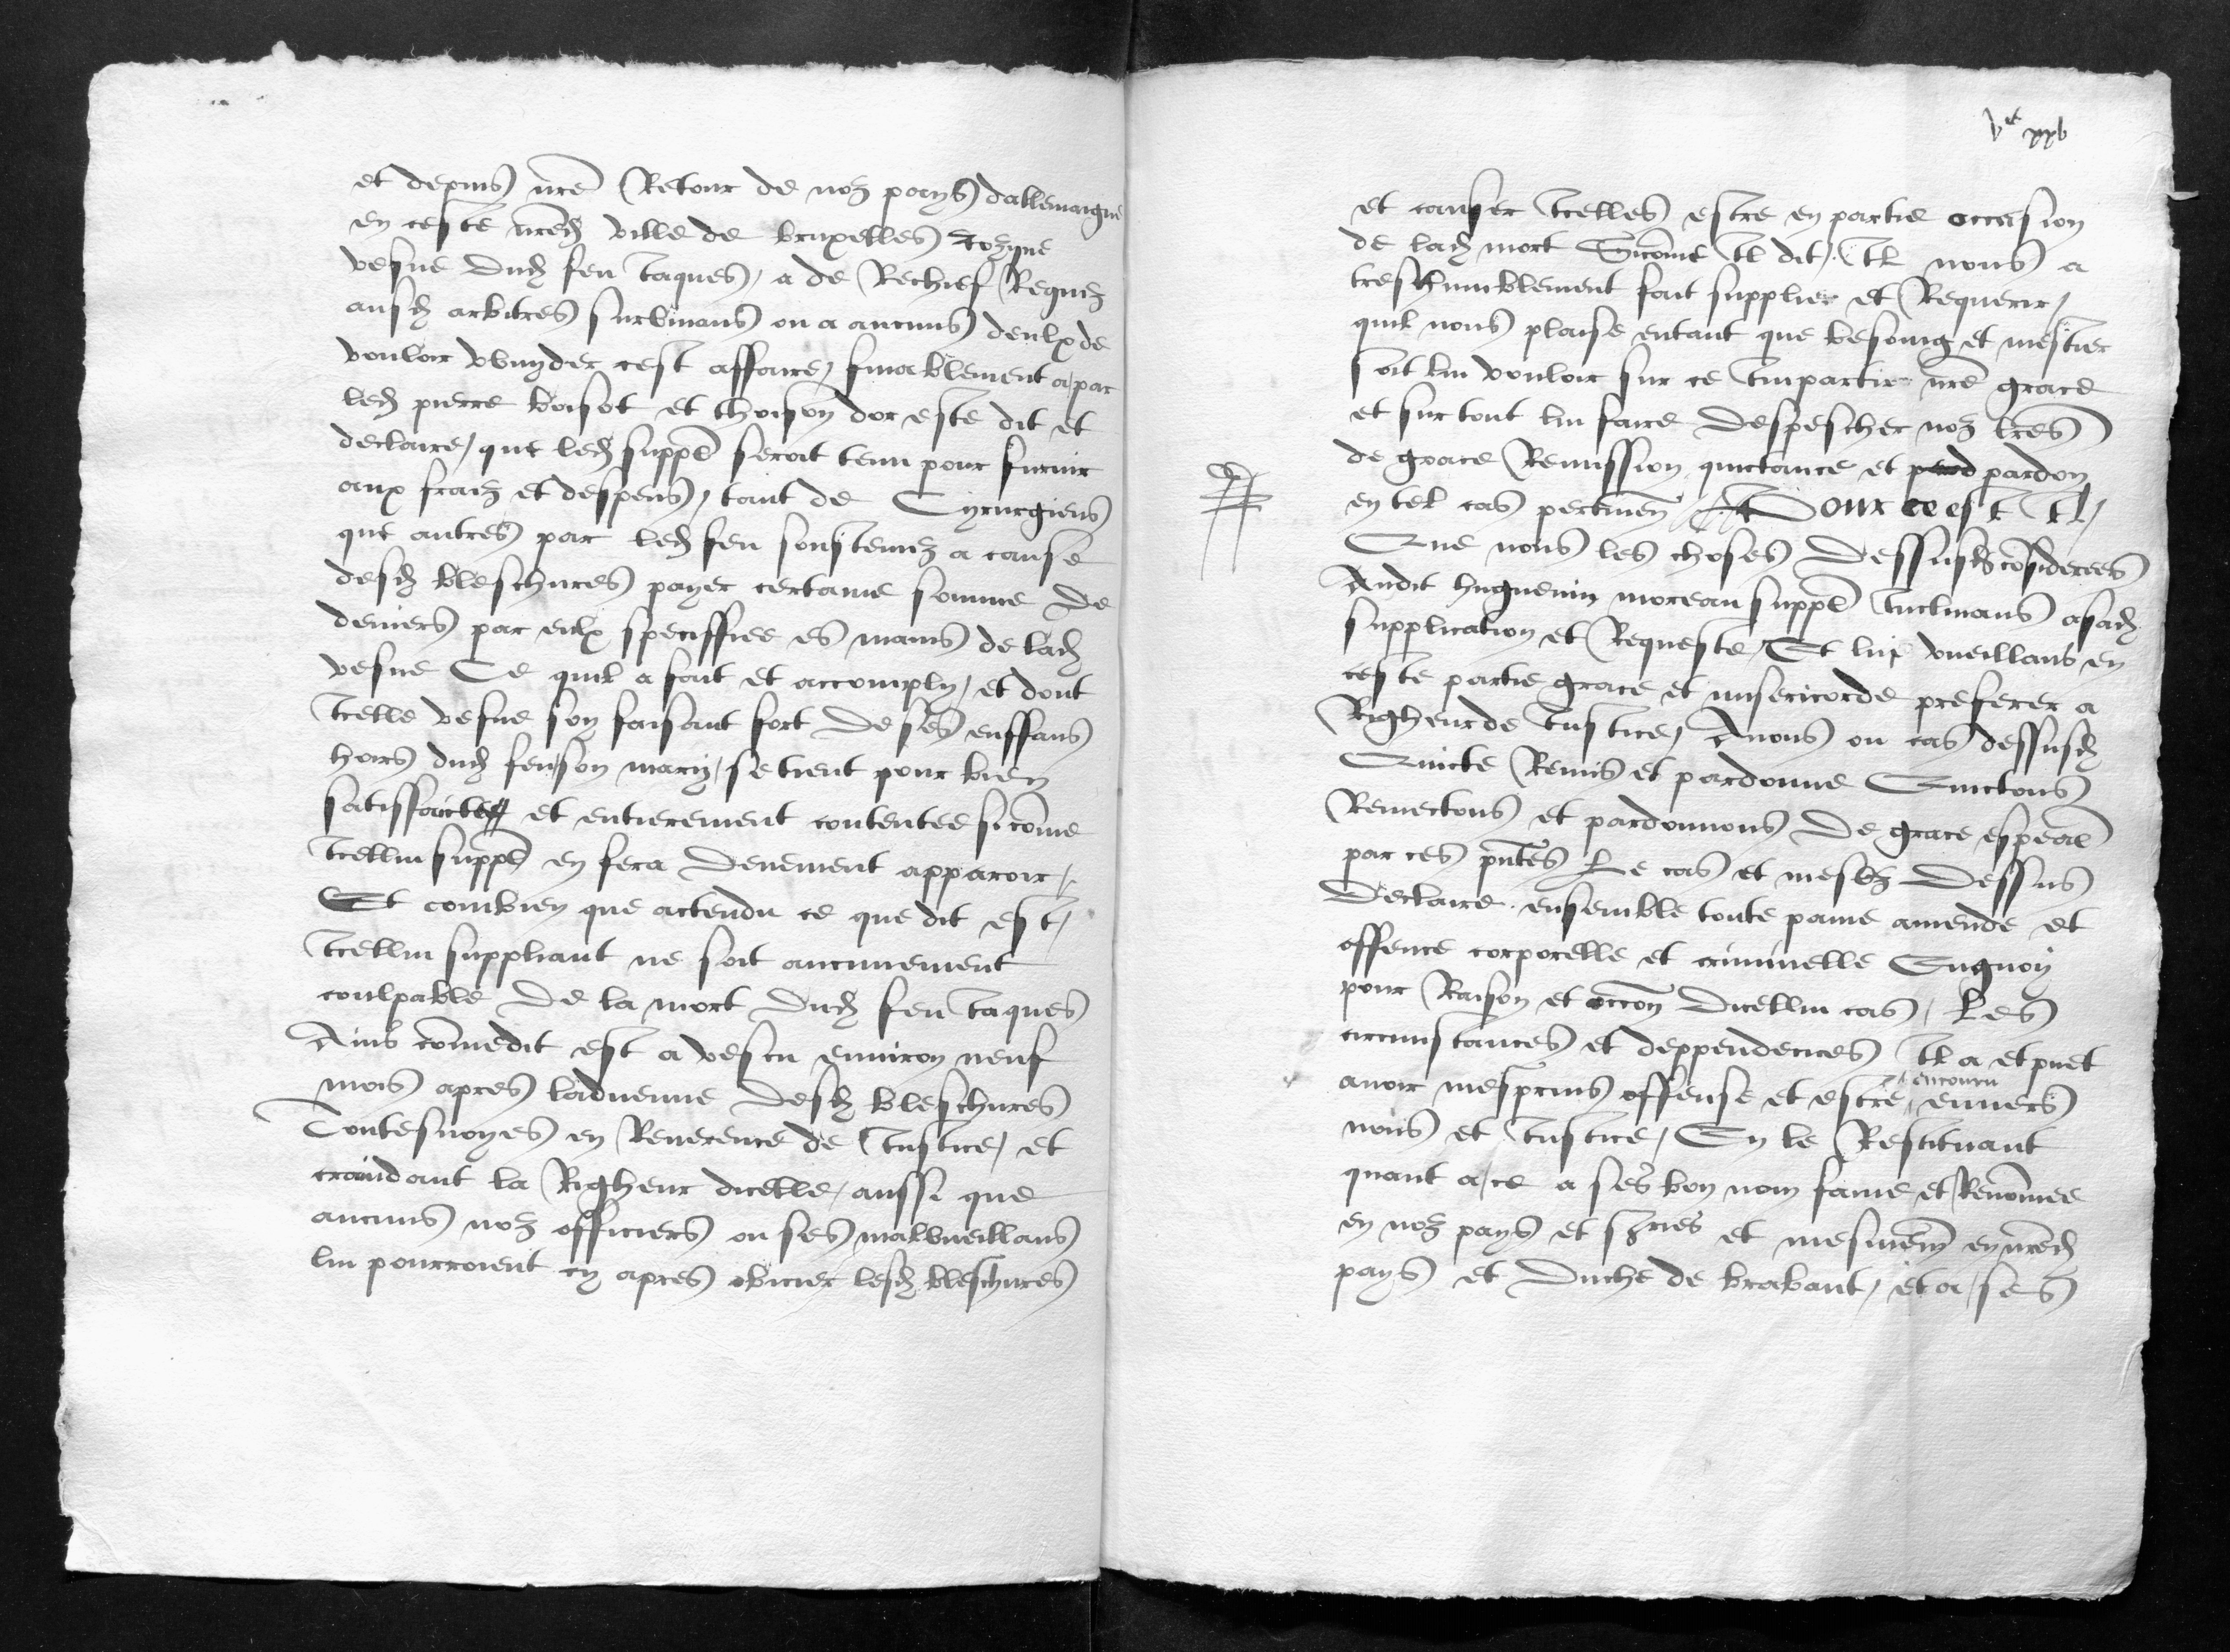 et depuis nre Retour de noz pays dallemaigne
en ceste nred ville de bruxelles Jozyne
vesue dud feu Jaques, a de Rechief Requiz
ausd arbitres survivans ou a aucuns deulx de
vouloir vuyder cest affaire, finablement a par
led pierre boisot et thoison dor este dit et
declaire, que led suppl seroit tenu pour furnir
aux fraiz et despens, tant de Cyrurgiens
que autres par led feu soustenuz a cause
desd bleschures payer certaine somme de
deniers par eulx speciffiee es mains de lad
vesue Ce quil a fait et accomply, et dont
Icelle vesue soy faisant fort de ses enffans
hoirs dud feu son mary, se tient pour bien
satisffaicte et entierement contentee sicome
Icelluy suppl en fera deuement apparoir,
Et combien que actendu ce que dit est,
Icelluy suppliant ne soit aucunement
coulpable de la mort dud feu Jaques
Ains comedit est a vescu enuiron neuf
mois apres laduenue desd bleschures
Toutesuoyes en Reuerence de Justice, et
craindant la Righeur dicelle, aussi que
aucuns noz officiers ou ses malvueillans
luy pourroient cy apres obicier lesd bleschures
Vc xxv
et causer Icelles estre en partie occasion
de lad mort Sicome Il dit, Il nous a
treshumblement fait supplier et Requerir,
quil nous plaise entant que besoing et mestier
soit luy vouloir sur ce Impartir nre grace
et sur tout luy faire despescher noz lres
de grace Remission quictance et pardon
en tel cas pertinen Pour ce est Il,
Que nous les choses dessusd cosiderees
Audit huguenin moreau suppl Inclinans asad
supplication et Requeste, Et luy vueillans en
ceste partie grace et misericorde preferer a
Righeur de Justice, Auons ou cas dessusd
Quicte Remis et pardonne Quictons
Remectons et pardonnons de grace espeal
par ces pntes Le cas et mesuz dessus
declaire, ensemble toute paine amende et
offence corporelle et criminelle Enquoy
pour Raison et occon dicelluy cas, Les
circunstances et deppendences Il a et puet
auoir mesprins offense et estre encouru enuers
nous et Justice, En le Restituant
quant a ce a ses bon nom fame et Renomee
en noz pays et sgries et mesmemt en nred
pays et Duche de brabant, et a ses